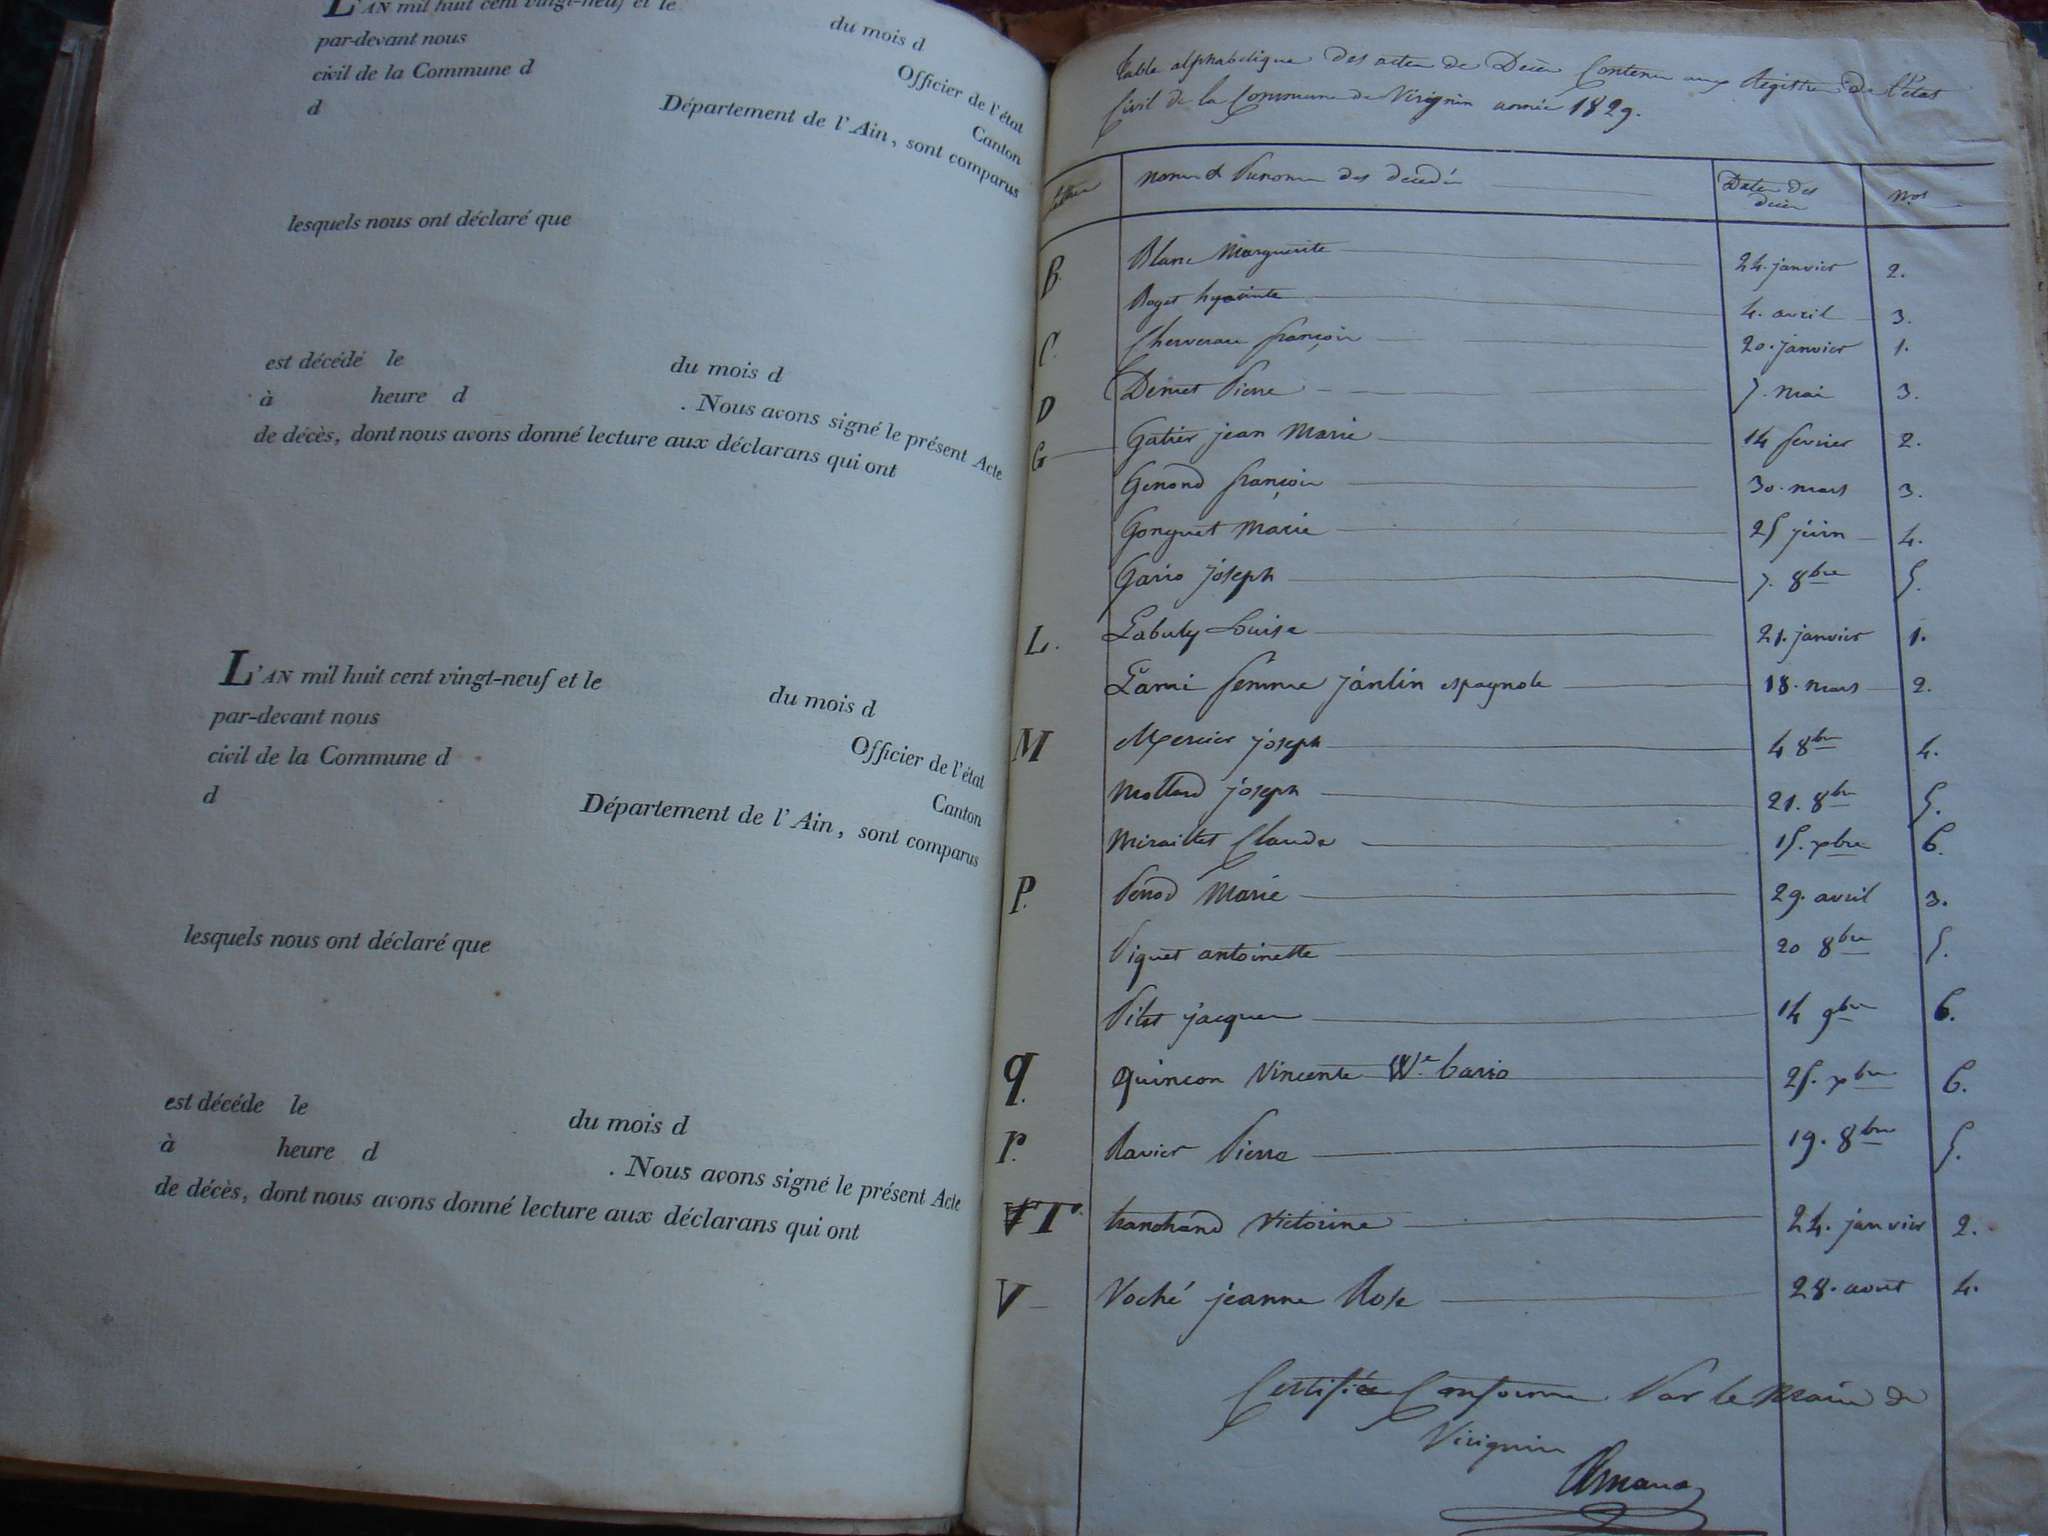 L'AN mil huit cent vingt-neuf et le
du mois d
par-devant nous
Officier de l'état
civil de la Commune d
Canton
d
Département de l'Ain, sont comparus
lesquels nous ont déclaré que
est décédé le
du mois d
à heure d
. Nous avons signé le présent Acte
de décès, dont nous avons donné lecture aux déclarans qui ont
L'AN mil huit cent vingt-neuf et le
du mois d
par-devant nous
Officier de l'état
civil de la Commune d
Canton
d
Département de l'Ain, sont comparus
lesquels nous ont déclaré que
est décéde le
du mois d
à heure d
. Nous avons signé le présent Acte
de décès, dont nous avons donné lecture aux déclarans qui ont
table alphabetique des actes de Décès Contenu aux Registre de l'état
Civil de la Commune de Virignin année 1829.
noms et Prenoms des decedés Dates des décès nos
B. Blanc Marguerite 24. janvier 2.
Roget hyacinte 4. avril 3.
C. françois 20. janvier 1.
D Pierre 7. mai 3.
G Gatier jean Marie 14 fevrier 2.
Genond françois 30. mars 3.
Gonguet Marie 25 juin 4.
Gario joseph 7. 8bre 5.
L. Labuly Louise 21. janvier 1.
Lami femme jantin espagnole 18. mars 2.
M Mercier joseph 4 8bre 4.
Mollard joseph 21. 8bre 5.
Miraillet Claude 15. xbre 6.
P. Penod Marie 29. avril 3.
Piquet antoinette 20 8bre 5.
Pilet jacques 14 9bre 6.
q. quincon Vincente Ve. Cario 25. xbre 6.
r. Ravier Pierre 19. 8bre 5.
T. tranchand Victorine 24. janvier 2.
V Voché jeanne Rose 28. aout 4.
Certifiée Conforme Par le Maire de
Virignin